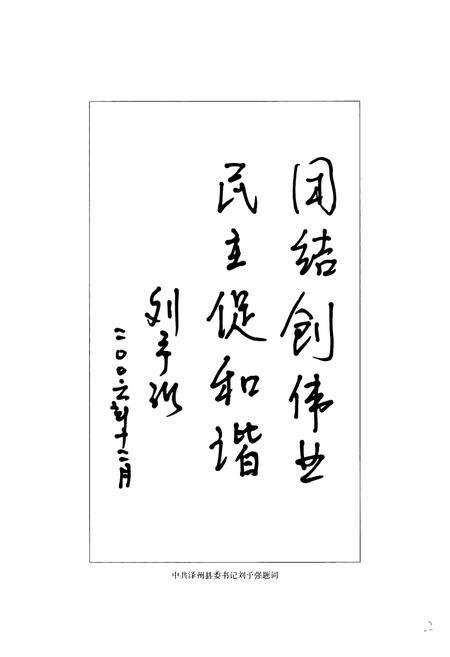 团结创伟业
民主促和谐
刘予强
二〇〇六年十二月
中共泽州县委书记刘予强题词